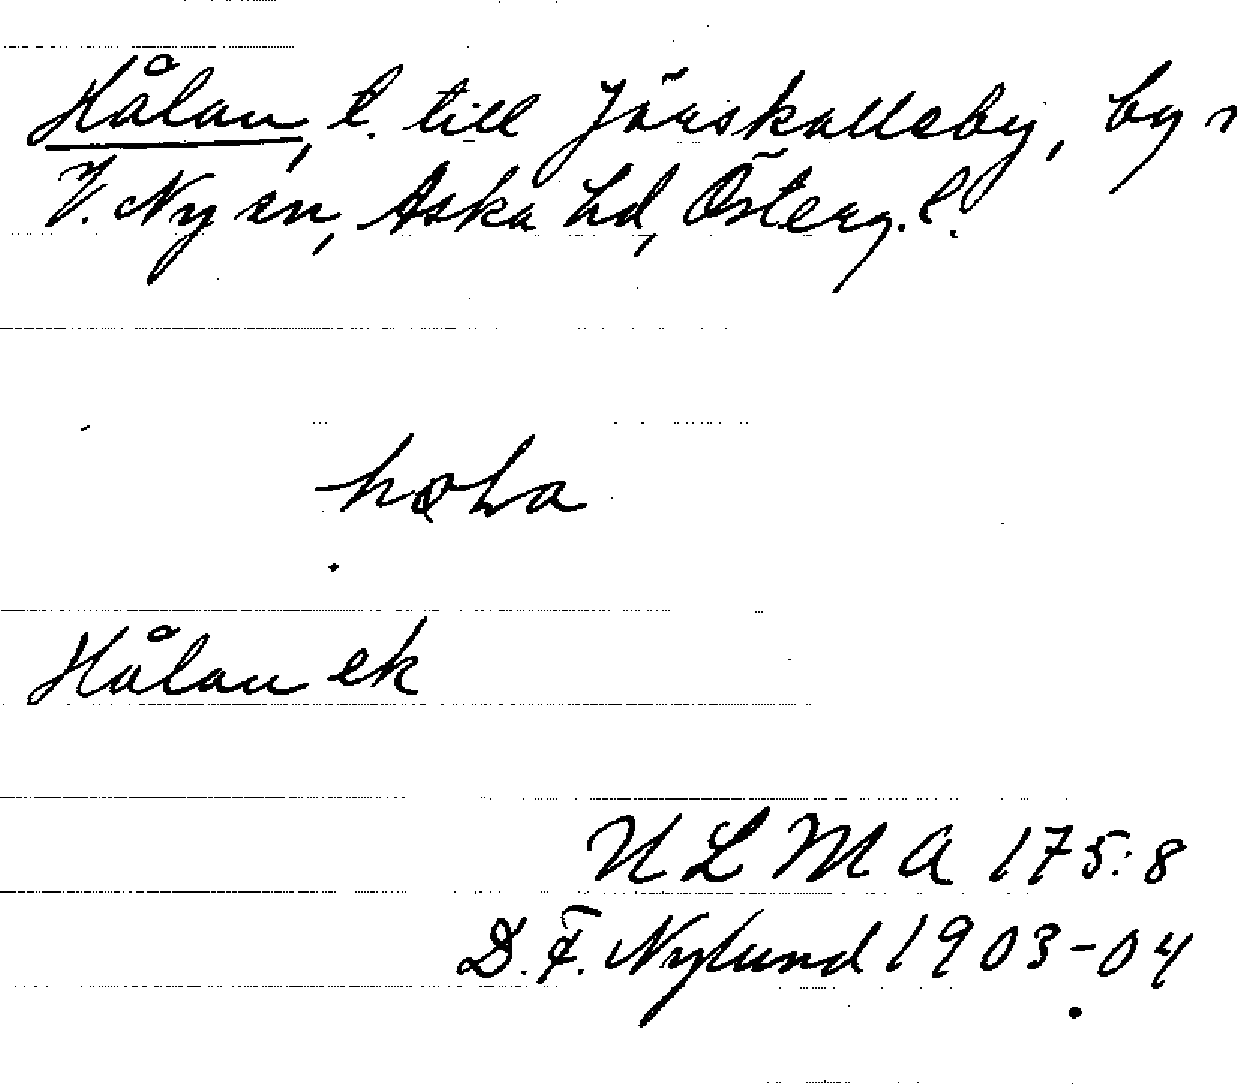 Hålan, t. till Järskalleby, by i
V. Ny sn, Aska hd, Österg. l.
Hålan ek
ULMA 175:8
D. F. Nylund 1903-04